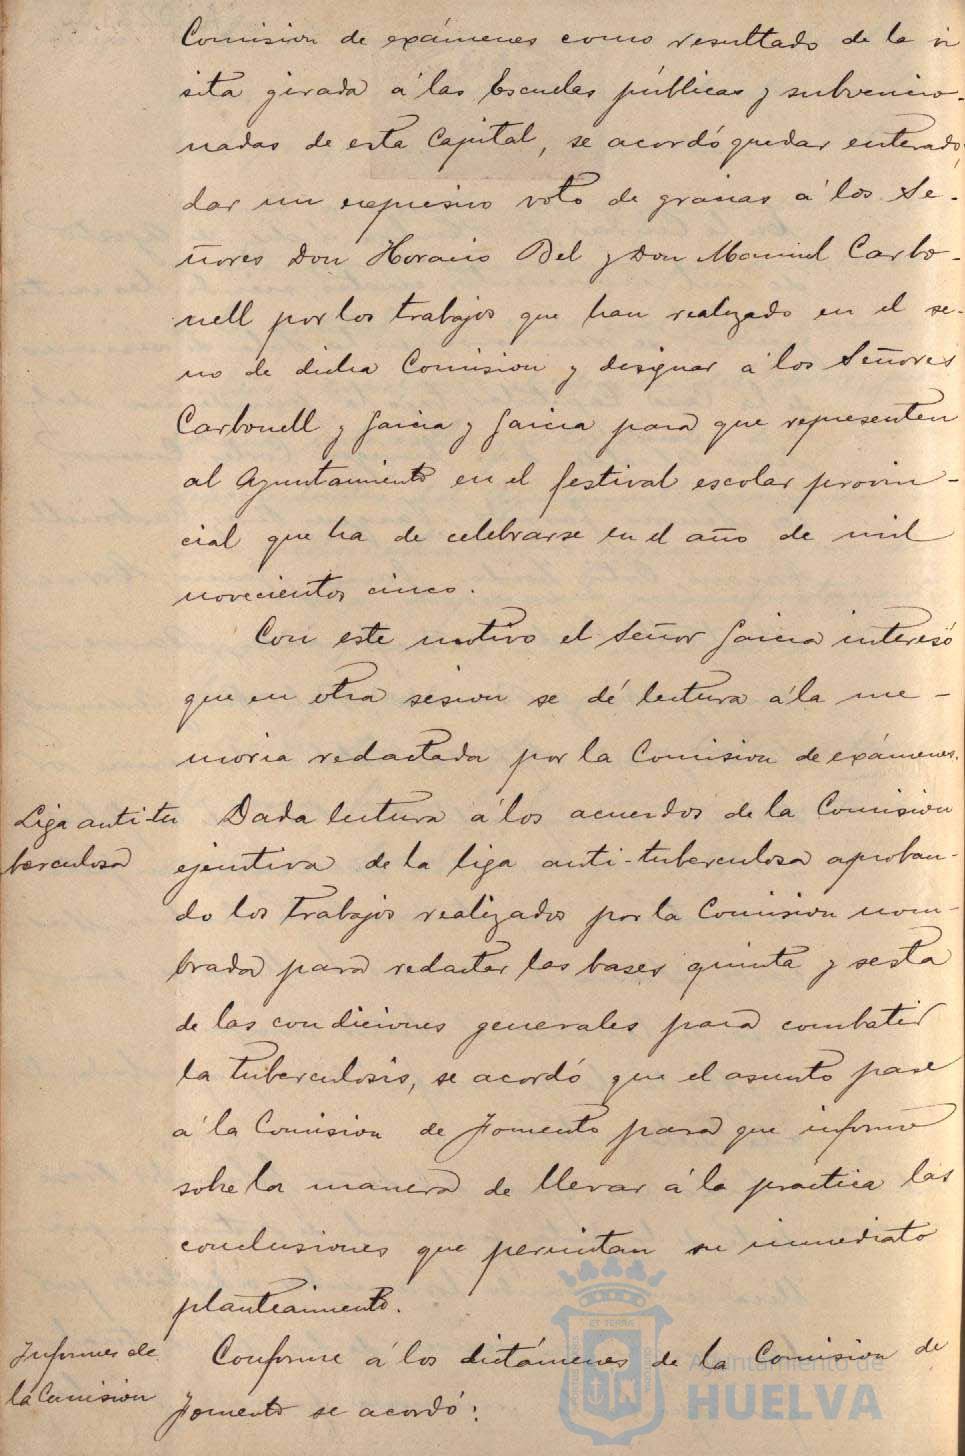 Comision de exámenes como resultado de la vi
sita girada á las Escuelas públicas y subvencio-
nadas de esta Capital, se acordó quedar enterado,
dar un expresivo voto de gracias á los Se-
ñores Don Horacio Bel y Don Manuel Carbo-
nell por los trabajos que han realizado en el se-
no de dicha Comision y designar á los Señores
Carbonell y Garcia y Garcia para que representen
al Ayuntamiento en el festival escolar provin-
cial que ha de celebrarse en el año de mil
novecientos cinco.
Con este motivo el Señor Garcia interesó
que en otra sesion se dé lectura á la me-
moria redactada por la Comision de exámenes.
Liga anti-tu
berculosa
Dada lectura á los acuerdos de la Comision
ejecutiva de la liga anti-tuberculosa aproban-
do los trabajos realizados por la Comision nom-
brada para redactar las bases quinta y sesta
de las condiciones generales para combatir
la tuberculosis, se acordó que el asunto pase
á la Comision de Fomento para que informe
sobre la manera de llevar á la práctica las
conclusiones que permitan su inmediato
planteamiento.
Informes de
la Comision
Conforme á los dictámenes de la Comision de
Fomento se acordó:
Ayuntamiento de
HUELVA